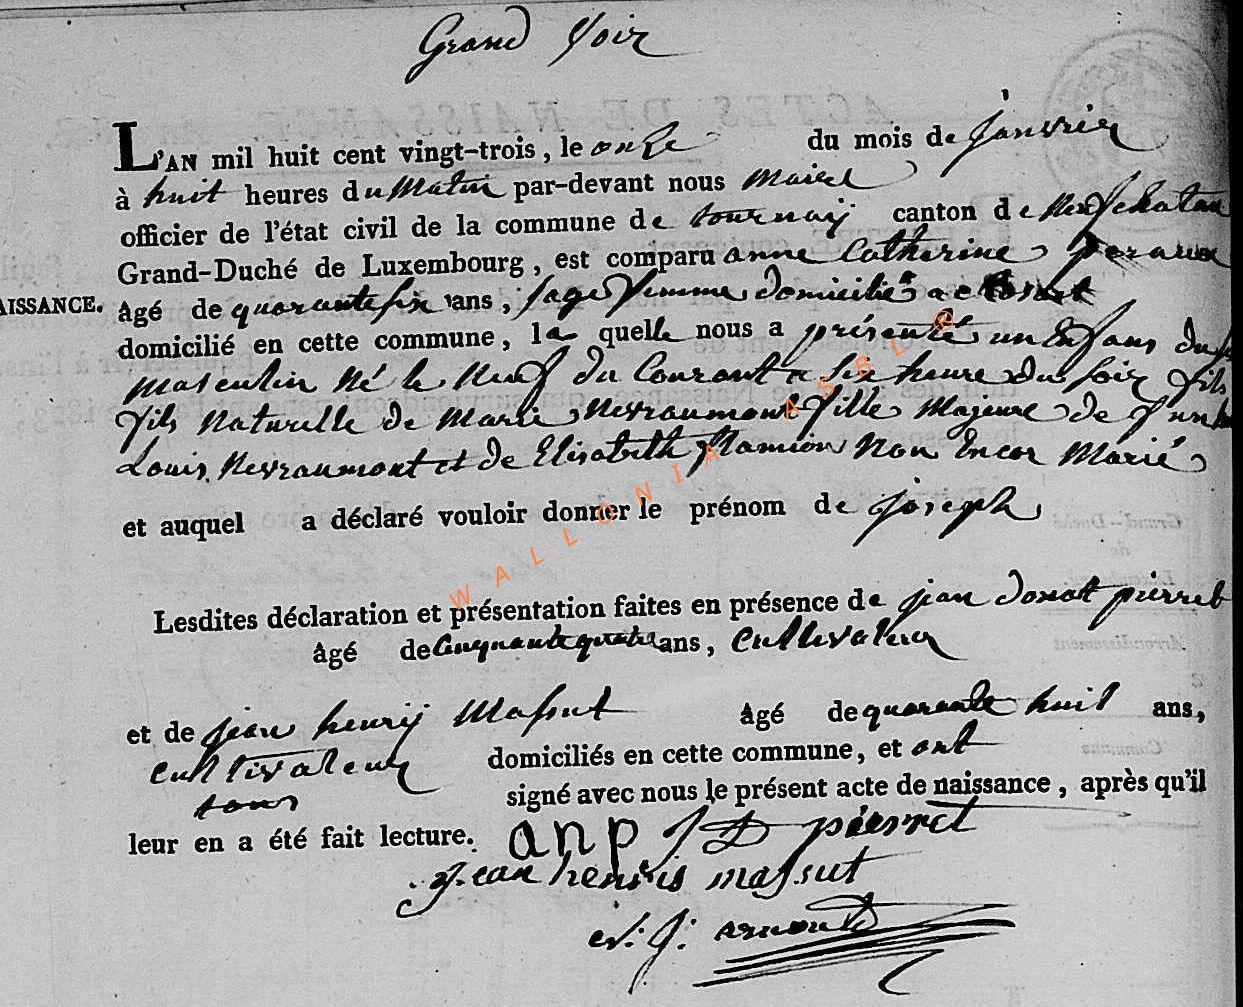 Grand Voir
L'AN mil huit cent vingt-trois, le onze du mois de janvrier
à huit heures du Matin par-devant nous Maire
officier de l'état civil de la commune de tournaij canton de Neufchatau
Grand-Duché de Luxembourg, est comparu anne Catherine
AISSANCE. âgé de quarante six ans, sage femme domicilié a
domicilié en cette commune, la quelle nous a présenté un Enfans du
masculin Né le Neuf du Courant a six heure du soir fils
fils Naturelle de Marie Nevraumont fille Majeure de
Louis Nevraumont et de Elisabeth Non Encor Marié
et auquel a déclaré vouloir donner le prénom de joseph
Lesdites déclaration et présentation faites en présence de jean donatt pierret
âgé de Cinquante quatre ans, Cultivateur
et de jean henrij Massut âgé de quarante huit ans,
Cultivateur domiciliés en cette commune, et ont
tous signé avec nous le présent acte de naissance, après qu'il
leur en a été fait lecture. anp J D pierret
Jean henris massut
WALLONIA ASBL ®